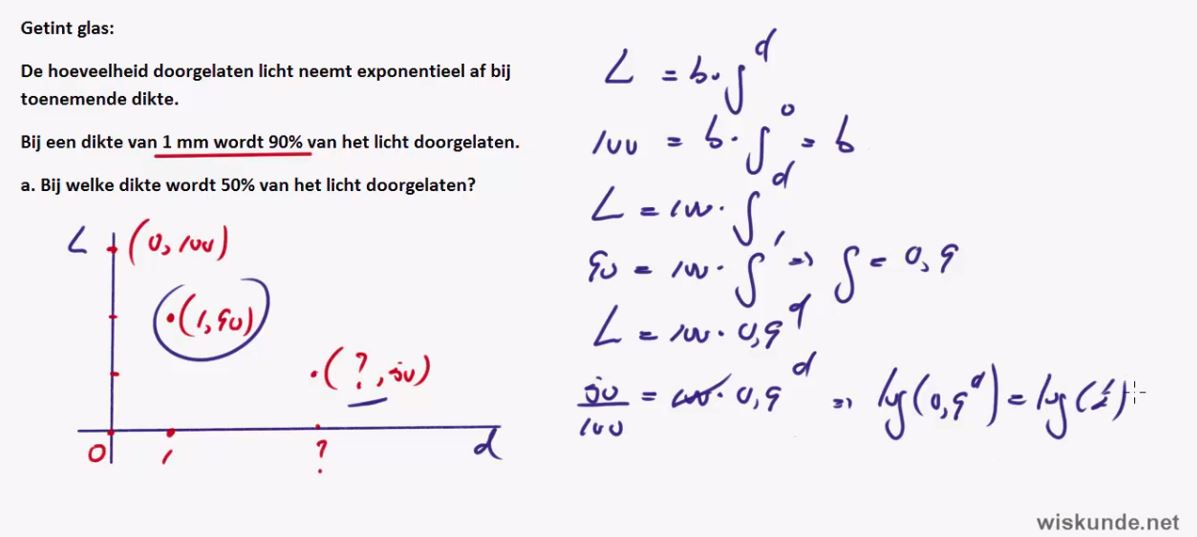 Getint glas:
De hoeveelheid doorgelaten licht neemt exponentieel af bij
toenemende dikte.
Bij een dikte van 1 mm wordt 90% van het licht doorgelaten.
a. Bij welke dikte wordt 50% van het licht doorgelaten?
L
(0, 100)
(1, 90)
(?, 50)
0
1
?
d
L = b · g^d
100 = b · g^0 = b
L = 100 · g^d
90 = 100 · g^1 => g = 0,9
L = 100 · 0,9^d
50/100 = 100 · 0,9^d => log(0,9^d) = log(½)
wiskunde.net